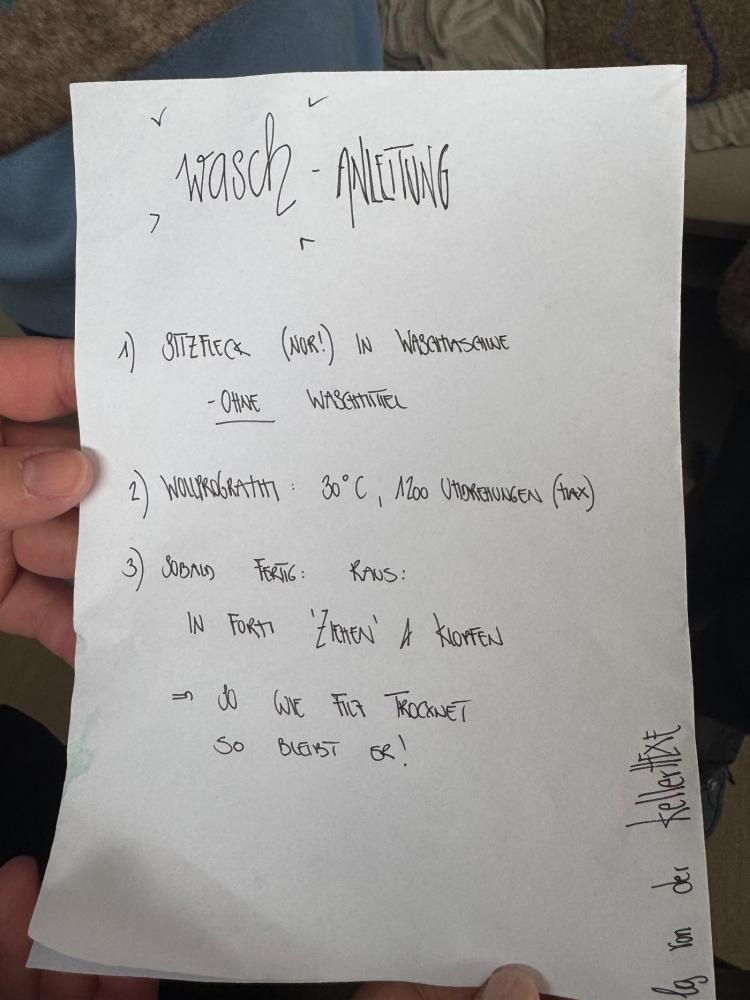 wasch - ANLEITUNG
1) SITZFLECK (NUR!) IN WASCHMASCHINE
- OHNE WASCHMITTEL
2) WOLLPROGRAMM: 30°C, 1200 UMDREHUNGEN (MAX)
3) SOBALD FERTIG: RAUS:
IN FORM 'ZIEHEN' & KLOPFEN
⇒ SO WIE FILZ TROCKNET
SO BLEIBT ER!
lg von der kellerHEXE